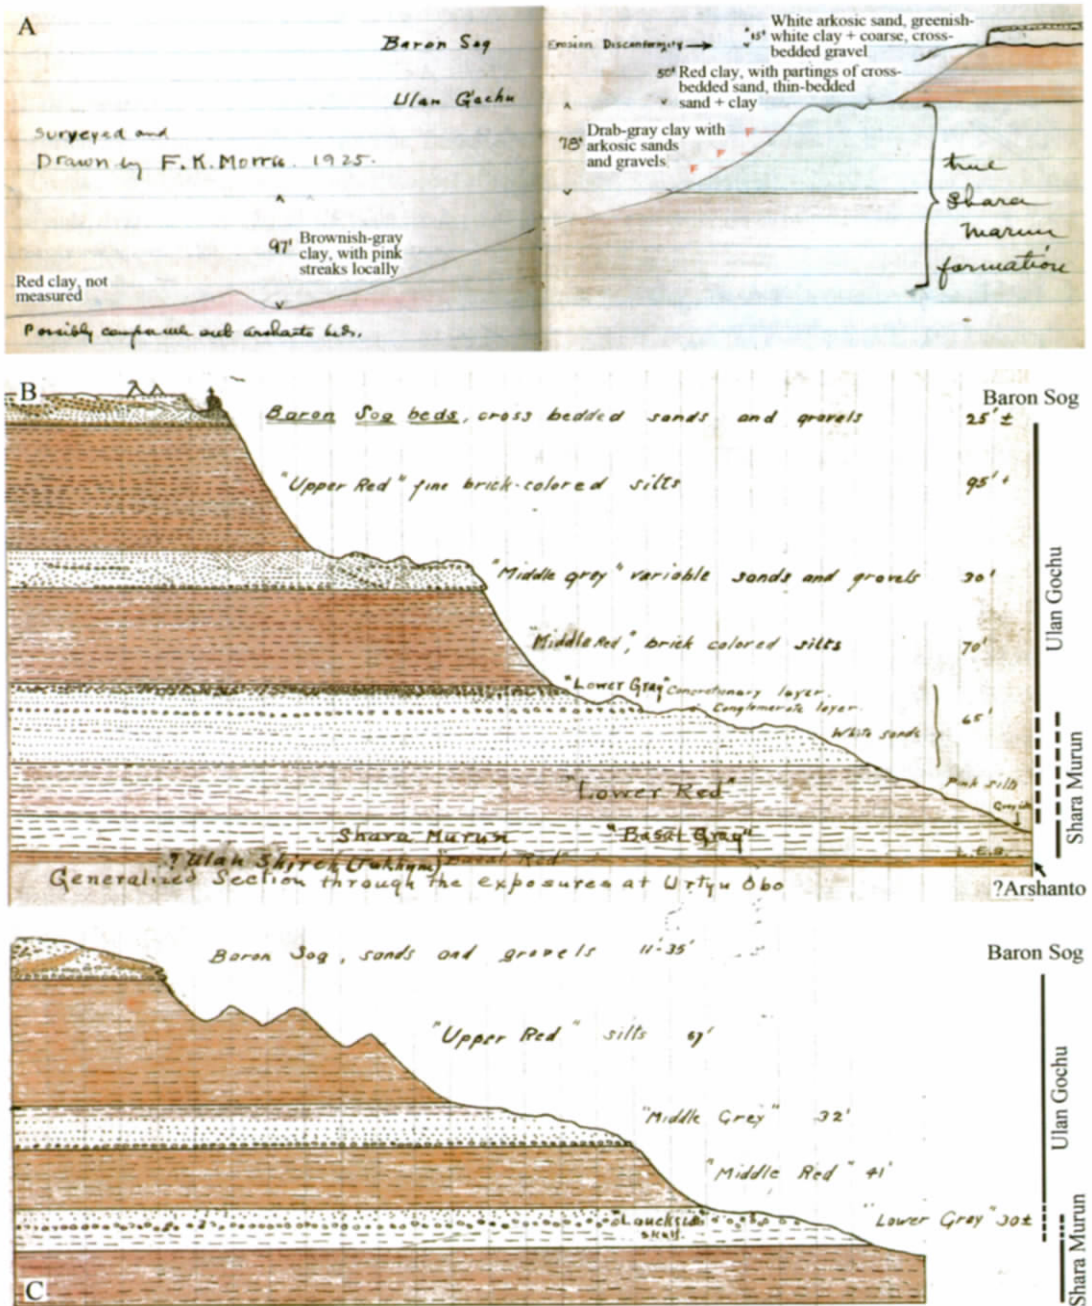 A
Baron Sog
Ulan Gochu
Surveyed and
Drawn by F. K. Morris. 1925.
97' Brownish-gray
clay, with pink
streaks locally
Red clay, not
measured
Possibly comparable with arshanto beds.
Erosion Disconformity
15' White arkosic sand, greenish-
white clay + coarse, cross-
bedded gravel
50' Red clay, with partings of cross-
bedded sand, thin-bedded
sand + clay
78' Drab-gray clay with
arkosic sands
and gravels
F F F
true
Shara
Murun
formation
B
Baron Sog beds, cross bedded sands and gravels 25' ±
"Upper Red" fine brick-colored silts 95' +
"Middle grey" variable sands and gravels 30'
"Middle Red", brick colored silts 70'
"Lower Gray" Concretionary layer.
Conglomerate layer.
White sands 65'
"Lower Red" Pink silts
Shara Murun "Basal Gray"
L.E.B.
? Ulan Shireh (Tukhum) "Basal Red"
Generalized Section through the exposures at Urtyu Obo
Baron Sog
Ulan Gochu
Shara Murun
?Arshanto
C
Baron Sog, sands and gravels 11'-35'
"Upper Red" silts 67'
"Middle Grey" 32'
"Middle Red" 41'
"Lower Gray" 30±
Baron Sog
Ulan Gochu
Shara Murun